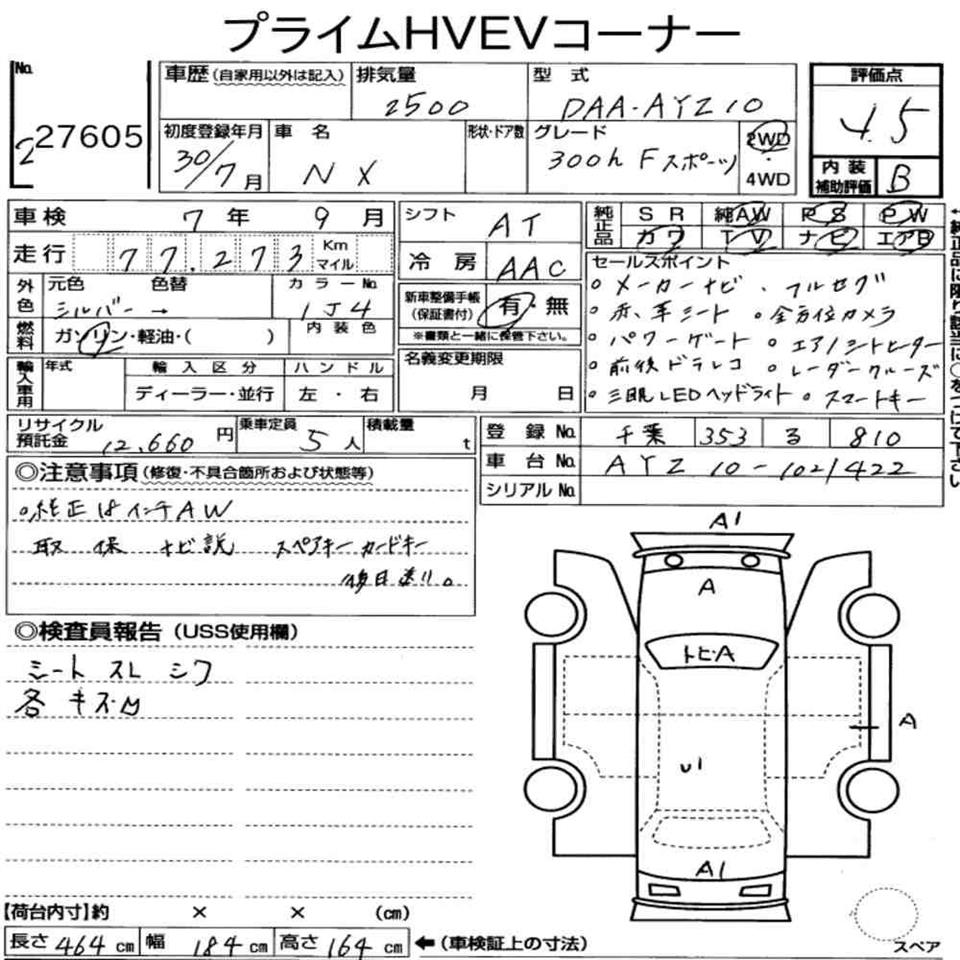 プライムHVEVコーナー
No. 27605
車歴(自家用以外は記入) 排気量 2500 型式 DAA-AYZ10
評価点 4.5
初度登録年月 30/7月 車名 NX 形状・ドア数 グレード 300h Fスポーツ 2WD・4WD
内装補助評価 B
車検 7年 9月 シフト AT
純正品 SR 純AW PS PW
カワ TV ナビ エアB
走行 77,273 Km マイル 冷房 AAC
外色 元色 シルバー → 色替 カラーNo. 1J4
新車整備手帳(保証書付) 有・無
※書類と一緒に保管下さい。
燃料 ガソリン・軽油・( ) 内装色
セールスポイント
○メーカーナビ、フルセグ
○赤、革シート ○全方位カメラ
○パワーゲート ○エアノシートヒーター
○前後ドラレコ ○レーダークルーズ
○三眼LEDヘッドライト ○スマートキー
輸入車用 年式 輸入区分 ディーラー・並行 ハンドル 左・右
名義変更期限 月 日
リサイクル預託金 12,660円 乗車定員 5人 積載量 t
登録No. 千葉 353 る 810
車台No. AYZ10-1021422
シリアルNo.
◎注意事項(修復・不具合箇所および状態等)
○純正18インチAW
取 保 ナビ説 スペアキー カードキー
後日送り。
◎検査員報告(USS使用欄)
シート スレ シワ
各 キズ凹
A1
A
トビ・A
A
U1
A1
スペア
【荷台内寸】約 × × (cm)
長さ 464cm 幅 184cm 高さ 164cm ←(車検証上の寸法)